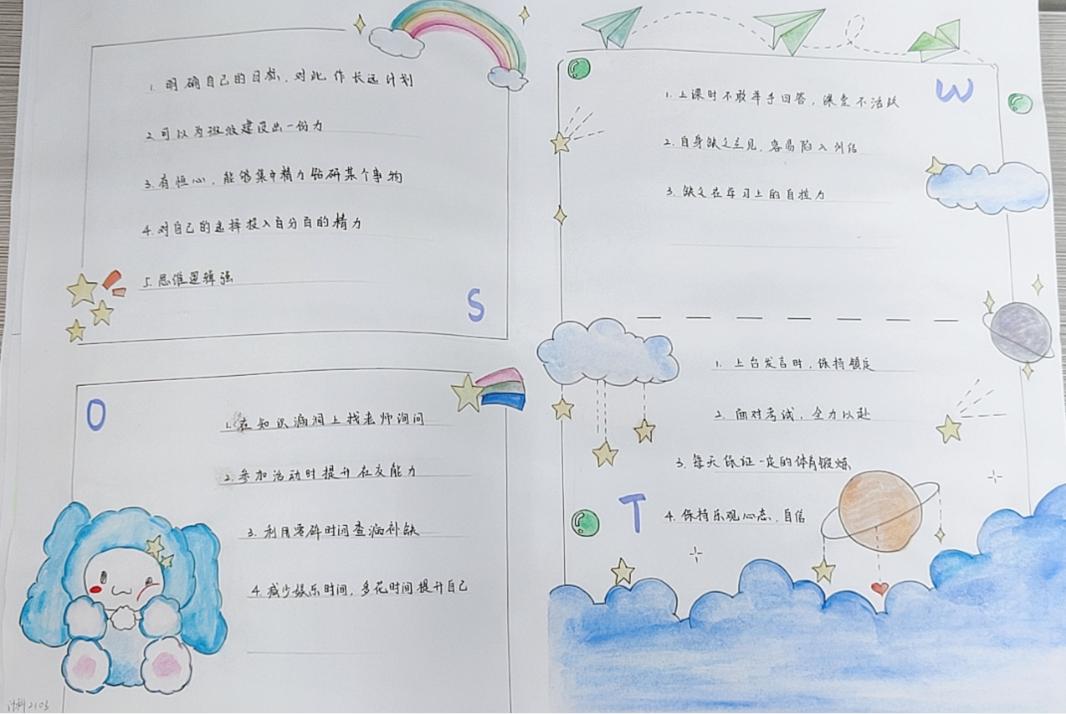 1. 明确自己的目标，对此作长远计划
2. 可以为班级建设出一份力
3. 有恒心，能够集中精力钻研某个事物
4. 对自己的选择投入百分百的精力
5. 思维逻辑强
S
W
1. 上课时不敢举手回答，课堂不活跃
2. 自身缺乏主见，容易陷入纠结
3. 缺乏在学习上的自控力
O
1. 在知识漏洞上找老师询问
2. 参加活动时提升社交能力
3. 利用零碎时间查漏补缺
4. 减少娱乐时间，多花时间提升自己
1. 上台发言时，保持镇定
2. 面对考试，全力以赴
3. 每天保证一定的体育锻炼
T
4. 保持乐观心态，自信
计科2103